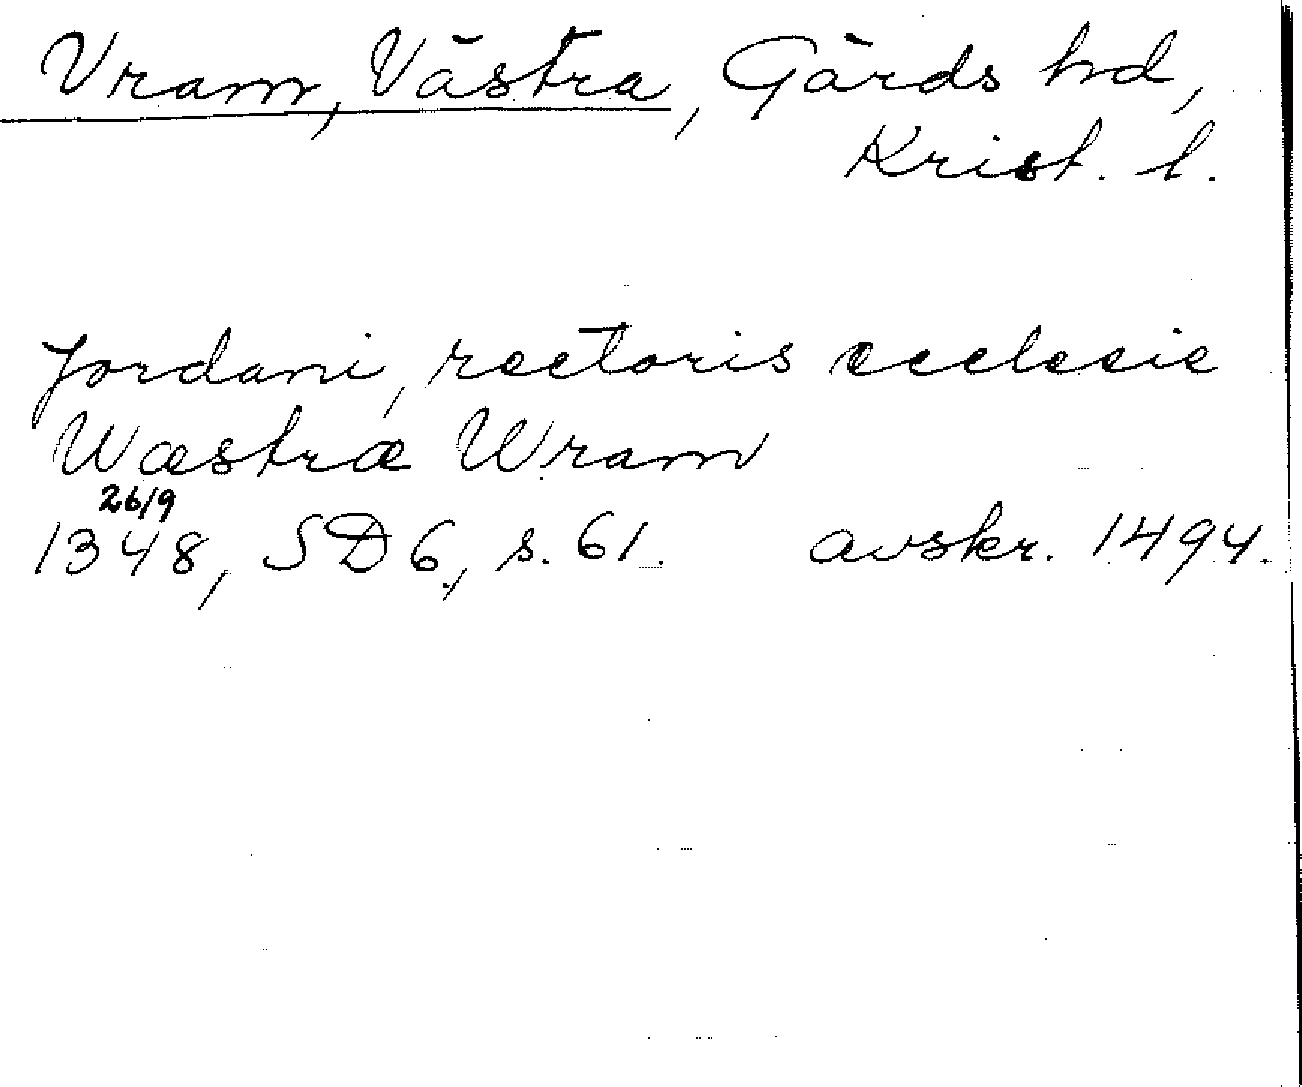 Vram, Västra, Gärds hd,
Krist. l.
Jordani, rectoris ecclesie
Wæstræ Wram
26/9
1348, SD 6, s. 61. avskr. 1494.